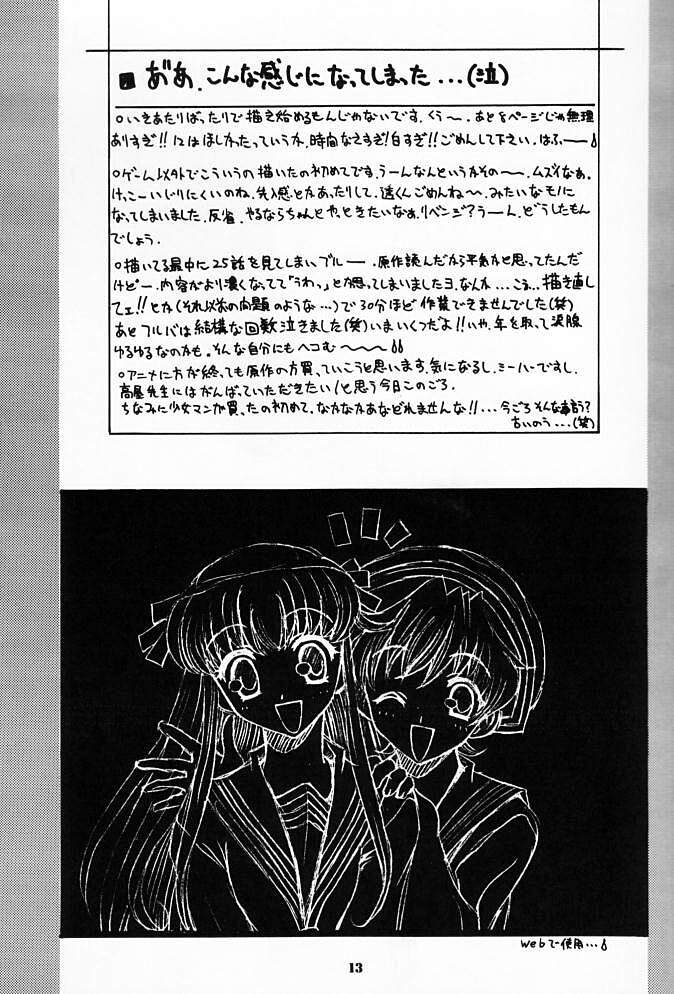 ■ あ゛あ、こんな感じになってしまった...(泣)
○いきあたりばったりで描き始めるもんじゃないです。くぅ〜。あと8ページじゃ無理
ありすぎ!!12はほしかったっていうか、時間なさすぎ!白すぎ!!ごめんして下さい。はふ〜
○ゲーム以外でこういうの描いたの初めてです。うーんなんというかその〜、ムズイなぁ。
けっこーいじりにくいのね。先入感とかあったりして。透くんごめんね〜。みたいなモノに
なってしまいました。反省。やるならちゃんとやっときたいなぁ。リベンジ?うーん、どうしたもん
でしょう。
○描いてる最中に25話を見てしまい、ブルー。原作読んだから平気かと思ってたんだ
けどー、内容がより濃くなってて「うわっ」とか思ってしまいましたヨ。なんか...こう...描き直し
てェ!!とか(それ以前の問題のような...)で30分ほど作業できませんでした(笑)
あとフルバは結構な回数泣きました(笑)いまいくつだよ!!いや、年を取って涙腺
ゆるゆるなのかも。そんな自分にもヘコむ〜
○アニメに方が終っても原作の方買っていこうと思います。気になるし、ミーハーですし。
高屋先生にはがんばっていただきたい!と思う今日このごろ。
ちなみに少女マンガ買ったの初めて。なかなかあなどれませんな!!...今ごろそんな事言う?
ちいのう...(笑)
Webで使用...
13